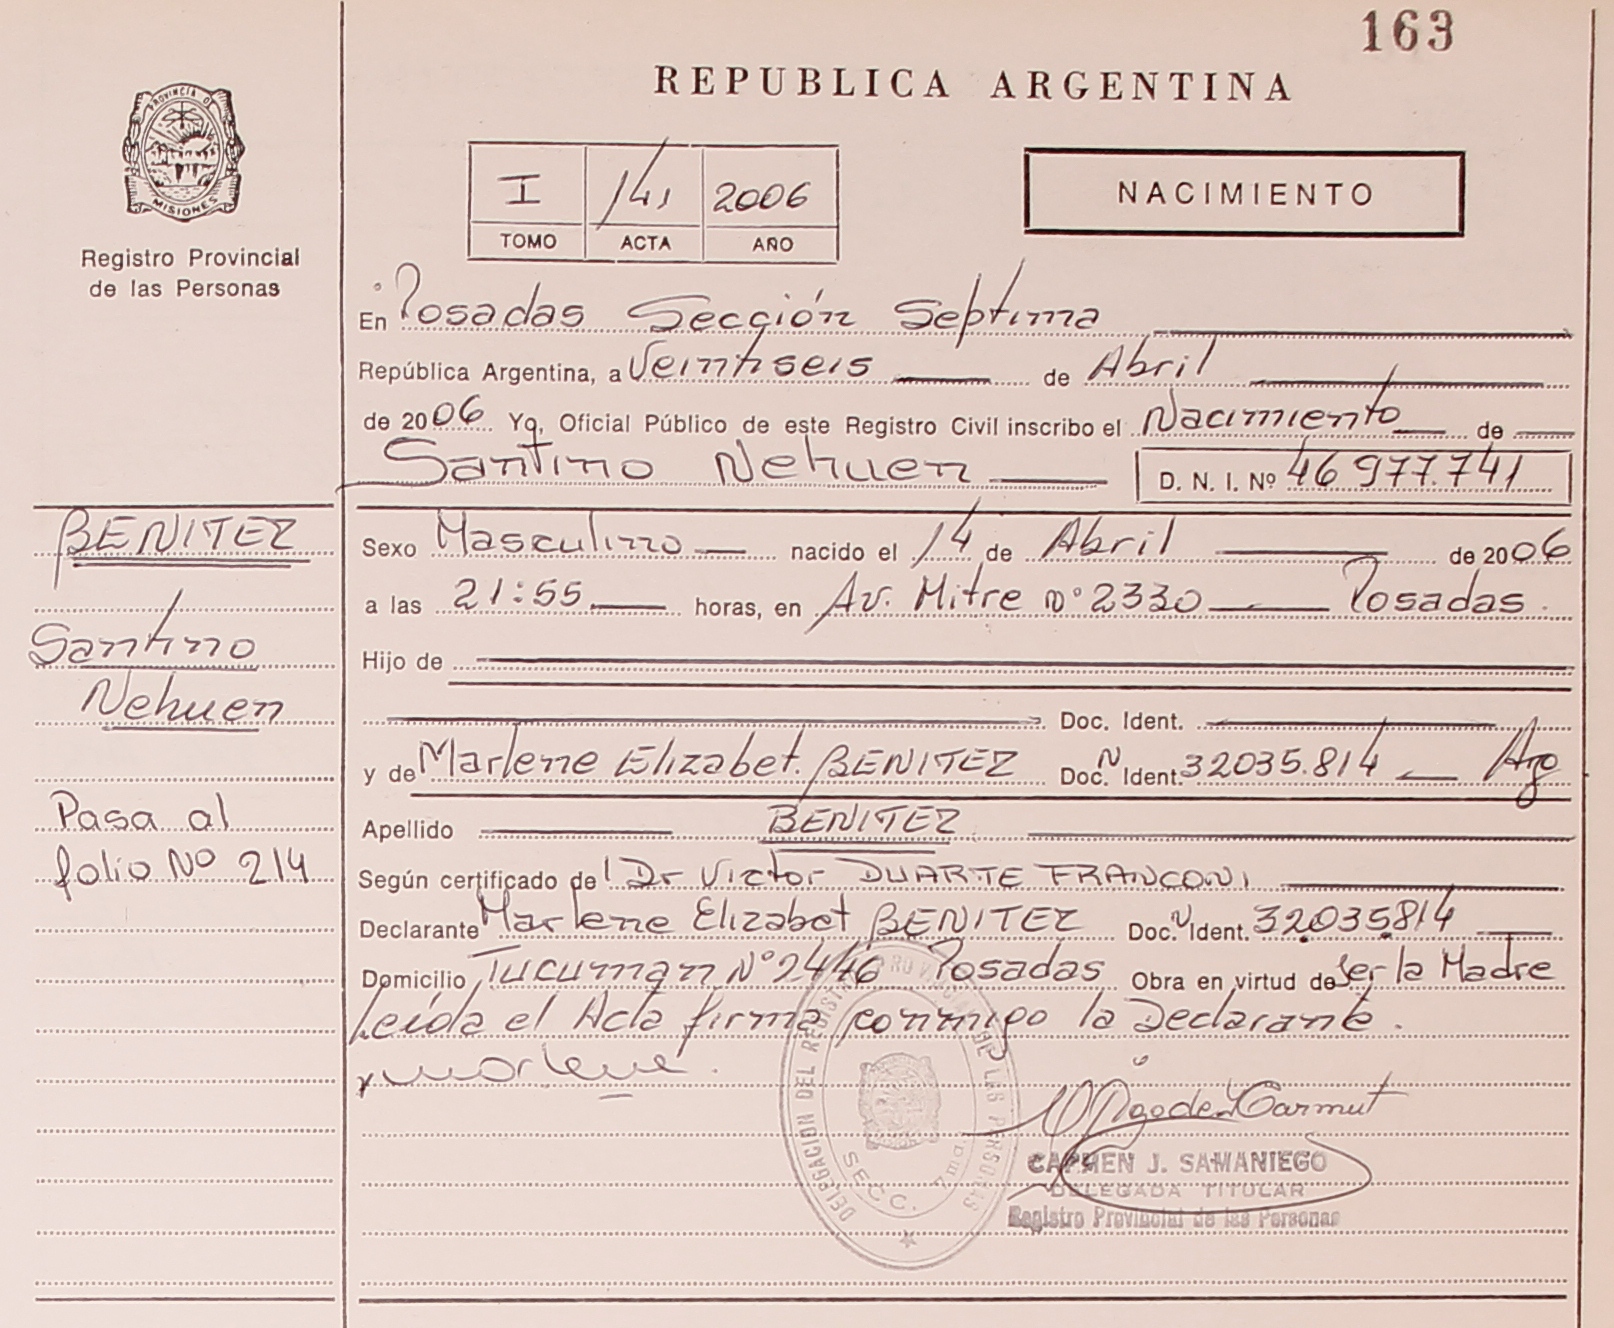 163
REPUBLICA ARGENTINA
PROVINCIA DE
MISIONES
Registro Provincial
de las Personas
I 141 2006
TOMO ACTA AÑO
NACIMIENTO
En Posadas Sección Septima
República Argentina, a Veintiseis de Abril
de 2006 Yo, Oficial Público de este Registro Civil inscribo el Nacimiento de
Santino Nehuen D. N. I. Nº 46 977.741
BENITEZ
Santino
Nehuen
Pasa al
folio Nº 214
Sexo Masculino nacido el 14 de Abril de 2006
a las 21:55 horas, en Av. Mitre nº 2330 Posadas.
Hijo de
Doc. Ident.
y de Marlene Elizabet. BENITEZ Doc. N Ident. 32035.814 Arg
Apellido BENITEZ
Según certificado del Dr Victor DUARTE FRANCONI
Declarante Marlene Elizabet BENITEZ Doc. N Ident. 32.035.814
Domicilio Tucuman Nº 2446 Posadas Obra en virtud de Ser la Madre
Leida el Acta firma conmigo la Declarante.
x Marlene.
DELEGACION DEL REGISTRO PROVINCIAL DE LAS PERSONAS
SECC. 7ma.
CARMEN J. SAMANIEGO
DELEGADA TITULAR
Registro Provincial de las Personas